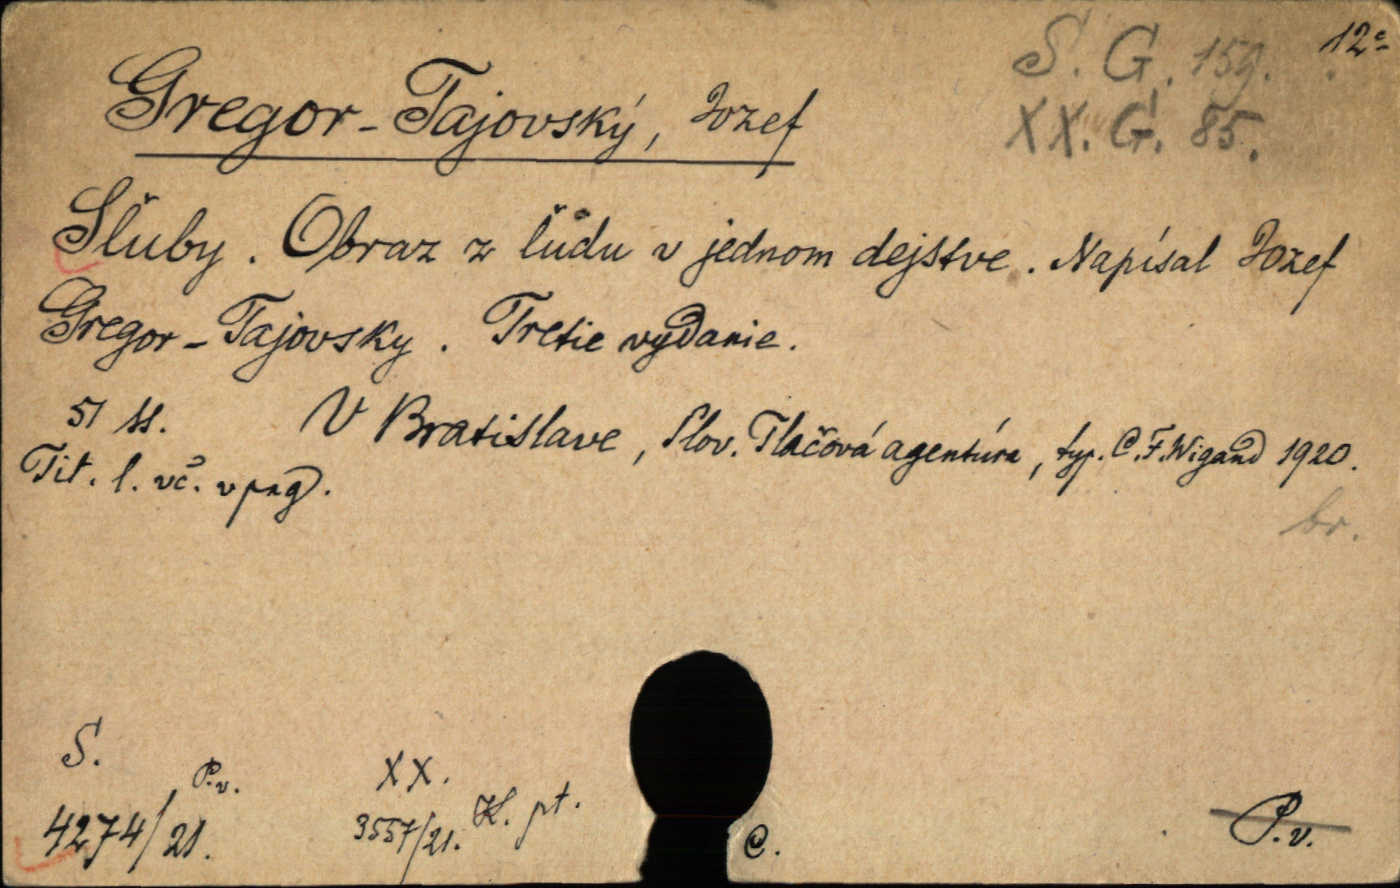 12°
S. G. 159.
XX. G. 85.
Gregor-Tajovský, Jozef
Sľuby. Obraz z ľudu v jednom dejstve. Napísal Jozef
Gregor-Tajovsky. Tretie vydanie.
51 ss. V Bratislave, Slov. Tlačová agentúra, typ. C.F.Wigand 1920.
Tit. l. vč. v pag.
br.
S. P.v. XX.
4274/21. 3557/21. pt.
C.
P.v.